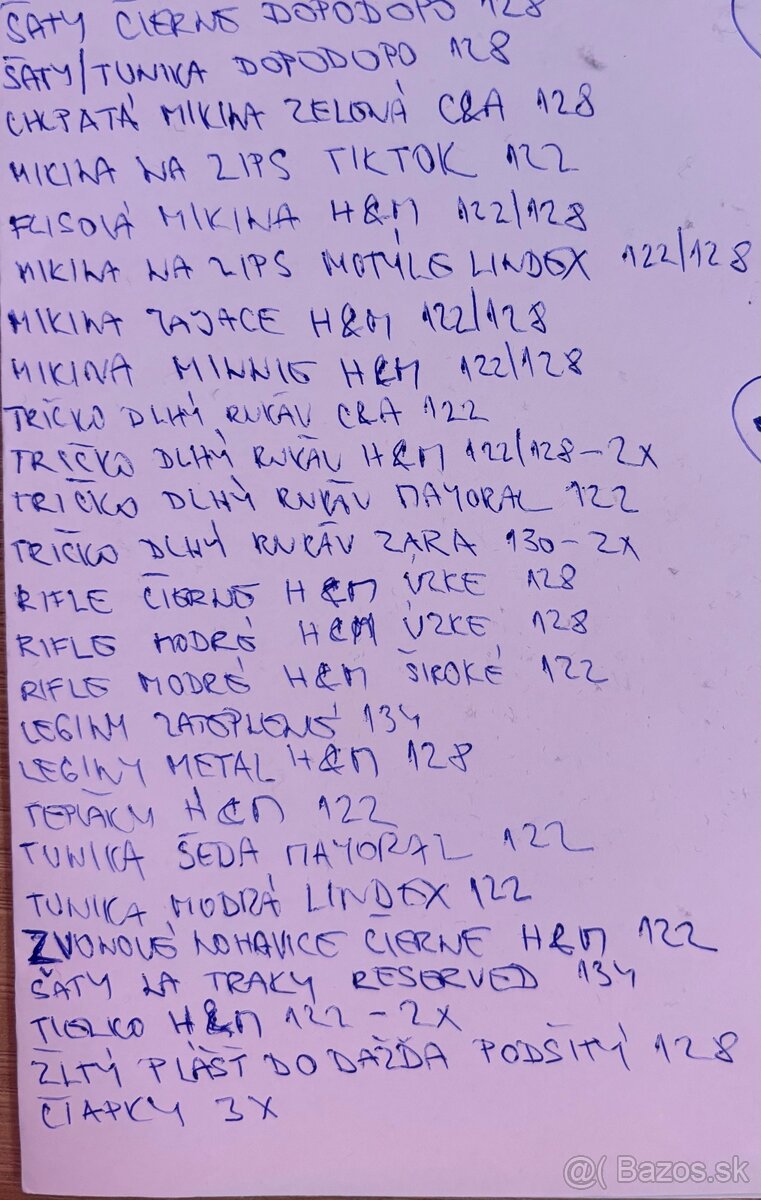 ŠATY ČIERNE DOPODOPO 128
ŠATY/TUNIKA DOPODOPO 128
CHLPATÁ MIKINA ZELENÁ C&A 128
MIKINA NA ZIPS TIKTOK 122
FLISOVÁ MIKINA H&M 122/128
MIKINA NA ZIPS MOTÝLE LINDEX 122/128
MIKINA ZAJACE H&M 122/128
MIKINA MINNIE H&M 122/128
TRIČKO DLHÝ RUKÁV C&A 122
TRIČKO DLHÝ RUKÁV H&M 122/128-2X
TRIČKO DLHÝ RUKÁV MAYORAL 122
TRIČKO DLHÝ RUKÁV ZARA 130-2X
RIFLE ČIERNE H&M ÚZKE 128
RIFLE MODRÉ H&M ÚZKE 128
RIFLE MODRÉ H&M ŠIROKÉ 122
LEGINY ZATEPLENÉ 134
LEGINY METAL H&M 128
TEPLÁKY H&M 122
TUNIKA ŠEDÁ MAYORAL 122
TUNIKA MODRÁ LINDEX 122
ZVONOVÉ NOHAVICE ČIERNE H&M 122
ŠATY NA TRAKY RESERVED 134
TIELKO H&M 122-2X
ŽLTÝ PLÁŠŤ DO DAŽĎA PODŠITÝ 128
ČIAPKY 3X
@( Bazos.sk